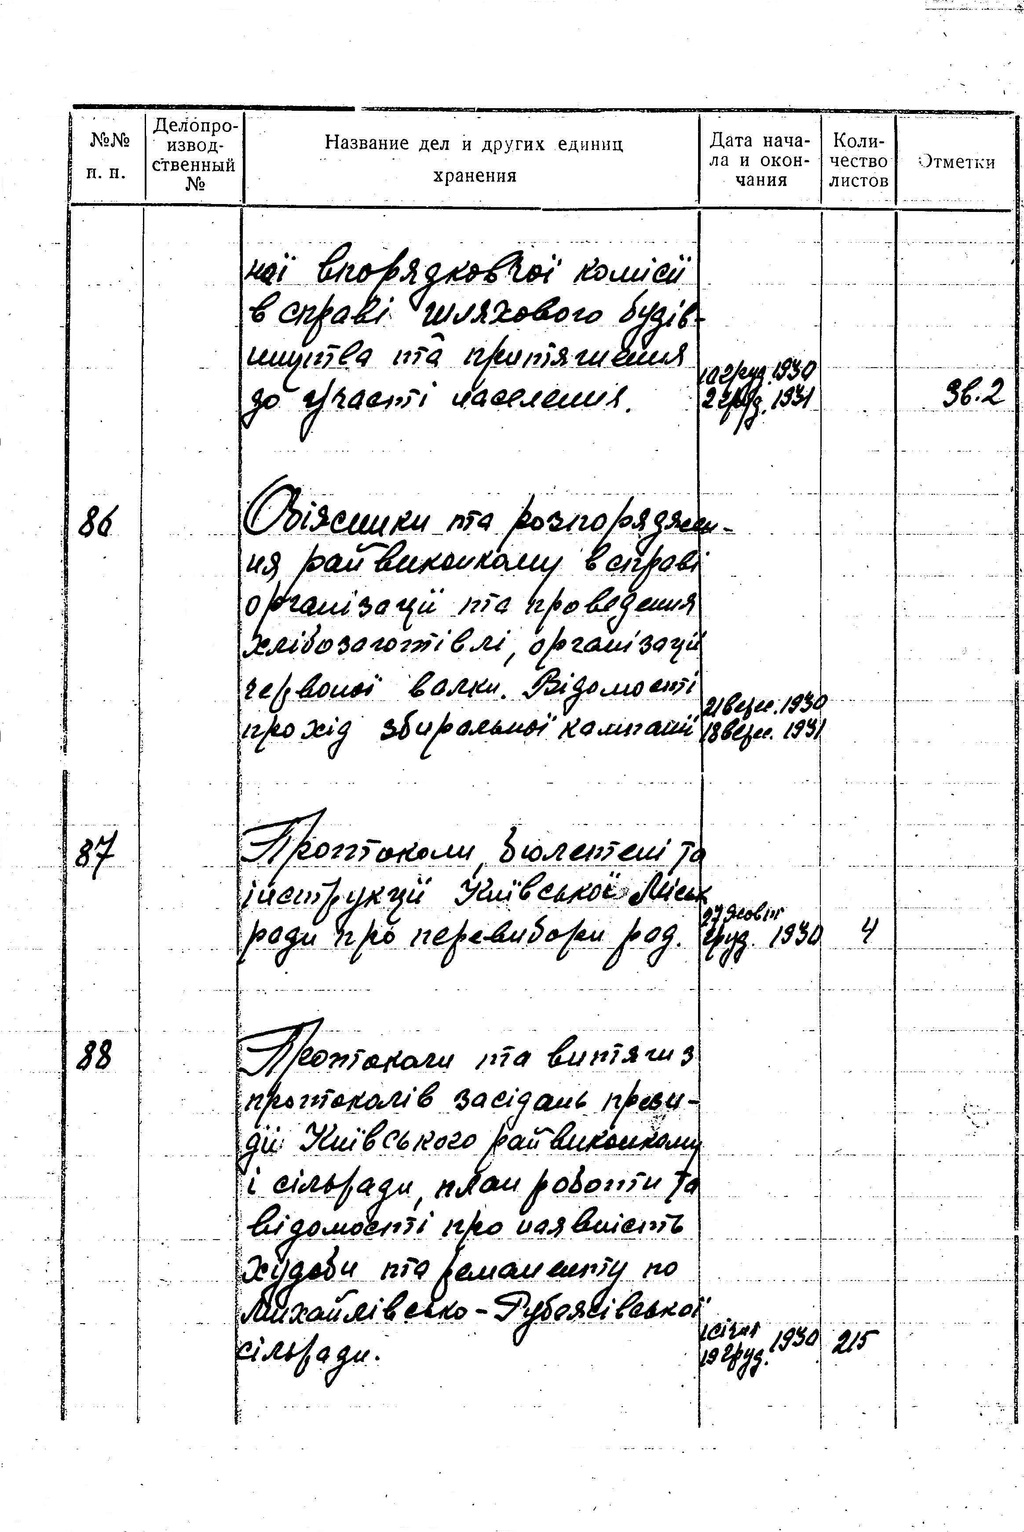 №№ п. п.
Делопро-
извод-
ственный
№
Название дел и других единиц
хранения
Дата нача-
ла и окон-
чания
Коли-
чество
листов
Отметки
ної впорядковчої комісії
в справі шляхового будів-
ництва та притягнення
до участі населення.
10 груд. 1930
2 груд. 1931
Зв. 2
86
Обіжники та розпоряджен-
ня райвиконкому в справі
організації та проведення
хлібозаготівлі, організації
червоної валки. Відомості
про хід збиральної кампанії
21 верес. 1930
18 верес. 1931
87
Протоколи, бюлетені та
інструкції Київської Міськ
ради про перевибори рад.
27 жовт
груд. 1930
4
88
Протоколи та витяги з
протоколів засідань прези-
дії Київського райвиконкому
і сільради, план роботи та
відомості про наявність
худоби та реманенту по
Михайлівсько-Рубежівської
сільради.
1 січня
19 груд. 1930
215